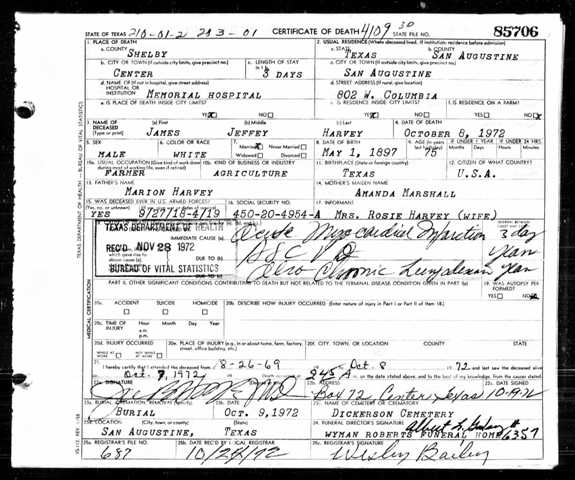 STATE OF TEXAS 210-01-2 213-01 CERTIFICATE OF DEATH 4109 30 STATE FILE NO. 85706
1. PLACE OF DEATH 2. USUAL RESIDENCE (Where deceased lived. If institution: residence before admission)
a. COUNTY a. STATE b. COUNTY
SHELBY TEXAS SAN AUGUSTINE
b. CITY OR TOWN (If outside city limits, give precinct no.) c. LENGTH OF STAY c. CITY OR TOWN (If outside city limits, give precinct no.)
CENTER 3 DAYS SAN AUGUSTINE
d. NAME OF (If not in hospital, give street address) d. STREET ADDRESS (If rural, give location)
HOSPITAL OR INSTITUTION MEMORIAL HOSPITAL 802 W. COLUMBIA
e. IS PLACE OF DEATH INSIDE CITY LIMITS? e. IS RESIDENCE INSIDE CITY LIMITS? f. IS RESIDENCE ON A FARM?
YES X NO YES X NO YES NO X
3. NAME OF DECEASED (a) First (b) Middle (c) Last 4. DATE OF DEATH
(Type or print) JAMES JEFFEY HARVEY OCTOBER 8, 1972
5. SEX 6. COLOR OR RACE 7. Married X Never Married 8. DATE OF BIRTH 9. AGE (In years IF UNDER 1 YEAR IF UNDER 24 HRS.
MALE WHITE Widowed Divorced MAY 1, 1897 75
10a. USUAL OCCUPATION (Give kind of work done 10b. KIND OF BUSINESS OR INDUSTRY 11. BIRTHPLACE (State or foreign country) 12. CITIZEN OF WHAT COUNTRY?
during most of working life, even if retired)
FARMER AGRICULTURE TEXAS U.S.A.
13. FATHER'S NAME 14. MOTHER'S MAIDEN NAME
MARION HARVEY AMANDA MARSHALL
15. WAS DECEASED EVER IN U.S. ARMED FORCES? 16. SOCIAL SECURITY NO. 17. INFORMANT
YES 9727718-4719 450-20-4954-A MRS. ROSIE HARVEY (WIFE)
TEXAS DEPARTMENT OF HEALTH
IMMEDIATE CAUSE (a) Acute Myocardial Infarction 3 day
REC'D NOV 28 1972
DUE TO (b)
BUREAU OF VITAL STATISTICS DUE TO (c)
PART II. OTHER SIGNIFICANT CONDITIONS CONTRIBUTING TO DEATH BUT NOT RELATED TO THE TERMINAL DISEASE CONDITION GIVEN IN PART I(a) 19. WAS AUTOPSY PERFORMED?
YES NO
20a. ACCIDENT SUICIDE HOMICIDE 20b. DESCRIBE HOW INJURY OCCURRED. (Enter nature of injury in Part I or Part II of item 18.)
20c. TIME OF INJURY Hour Month Day Year
a.m.
p.m.
20d. INJURY OCCURRED 20e. PLACE OF INJURY (e.g., in or about home, farm, factory, street, office building, etc.) 20f. CITY, TOWN, OR LOCATION COUNTY STATE
WHILE AT WORK NOT WHILE AT WORK
21. I hereby certify that I attended the deceased from 8-26-69 Oct. 8 1972 and last saw the deceased alive
on Oct. 7, 1972 Death occurred at 845 A m. on the date stated above, and to the best of my knowledge, from the causes stated.
22a. SIGNATURE 22b. ADDRESS 22c. DATE SIGNED
MD Box 72 Center, Texas 10-19-72
23a. BURIAL, CREMATION, REMOVAL (Specify) 23b. DATE 23c. NAME OF CEMETERY OR CREMATORY
BURIAL OCT. 9, 1972 DICKERSON CEMETERY
23d. LOCATION (City, town, or county) (State) 24. FUNERAL DIRECTOR'S SIGNATURE
SAN AUGUSTINE, TEXAS WYMAN ROBERTS FUNERAL HOME 6357
25a. REGISTRAR'S FILE NO. 25b. DATE REC'D BY LOCAL REGISTRAR 25c. REGISTRAR'S SIGNATURE
687 10/24/72 Wesley Bailey
TEXAS DEPARTMENT OF HEALTH — BUREAU OF VITAL STATISTICS
MEDICAL CERTIFICATION